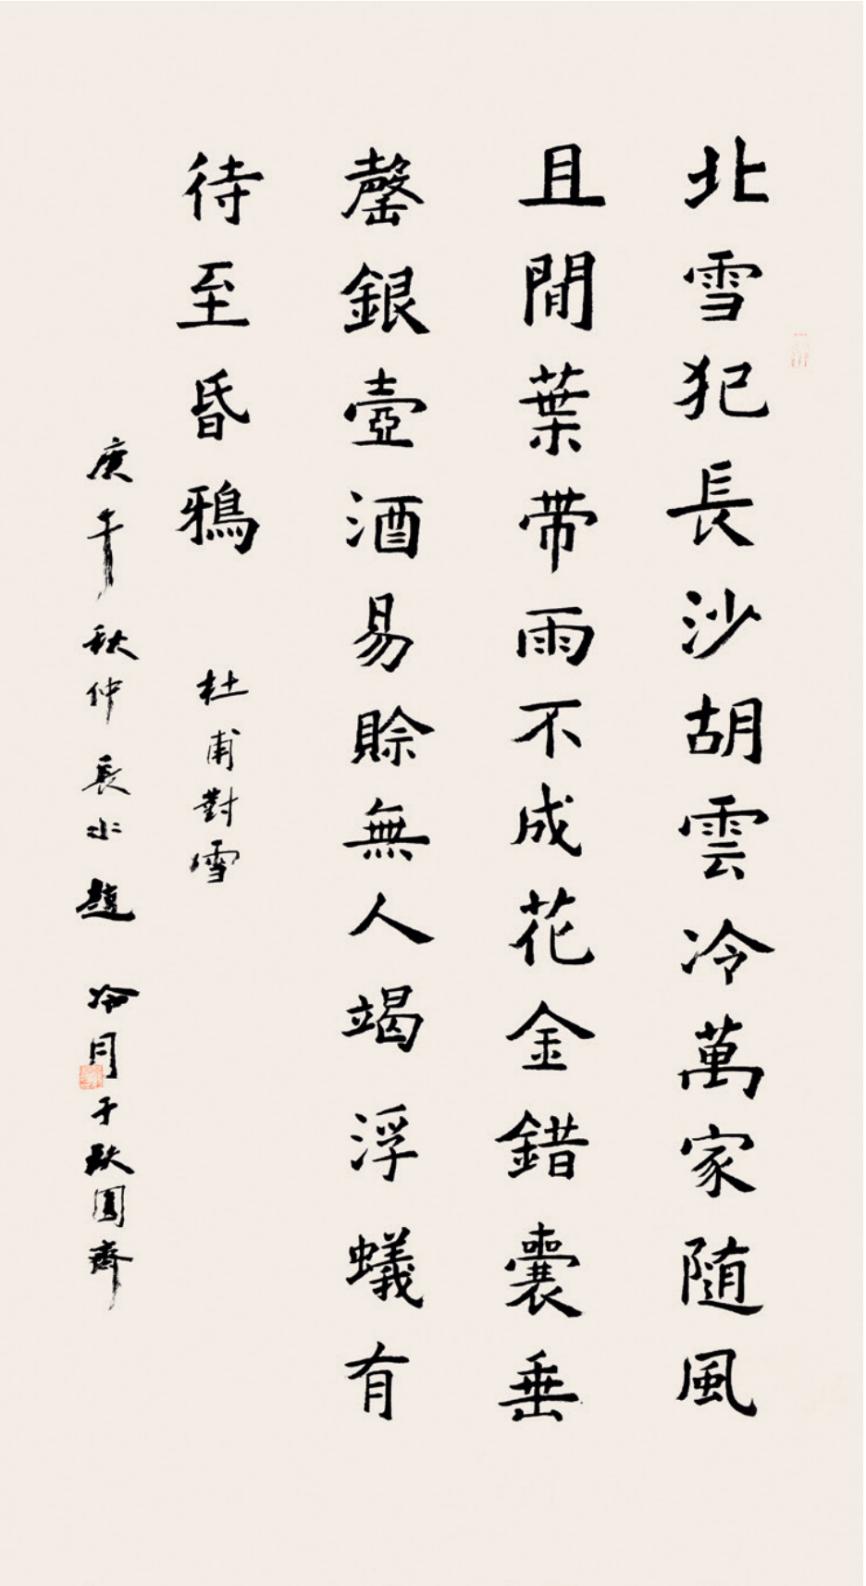 北雪犯長沙胡雲冷萬家随風
且間葉帶雨不成花金錯囊垂
罄銀壺酒易賒無人竭浮蟻有
待至昏鴉
杜甫對雪
庚午秋仲長水趙冷月于缺圓齋